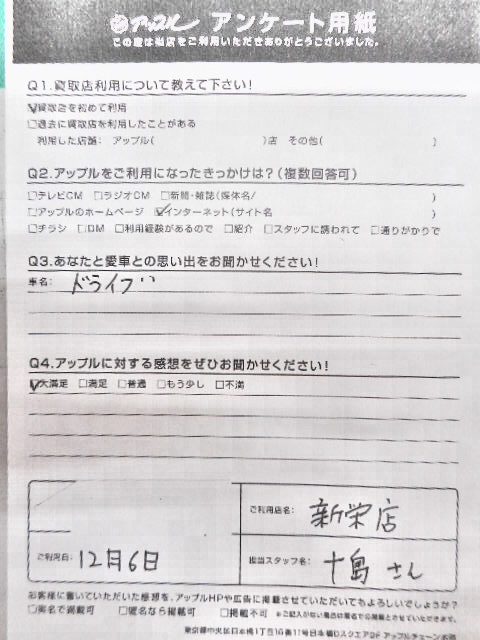 アップル アンケート用紙
この度は当店をご利用いただきありがとうございました。
Q1.買取店利用について教えて下さい!
☑買取店を初めて利用
□過去に買取店を利用したことがある
利用した店舗: アップル( )店 その他( )
Q2.アップルをご利用になったきっかけは?(複数回答可)
□テレビCM □ラジオCM □新聞・雑誌(媒体名/ )
□アップルのホームページ ☑インターネット(サイト名 )
□チラシ □DM □利用経験があるので □紹介 □スタッフに誘われて □通りがかりで
Q3.あなたと愛車との思い出をお聞かせください!
車名: ドライブ
Q4.アップルに対する感想をぜひお聞かせください!
☑大満足 □満足 □普通 □もう少し □不満
ご利用店名: 新栄店
ご利用日: 12月6日
担当スタッフ名: 十島さん
お客様に書いていただいた感想を、アップルHPや広告に掲載させていただいてもよろしいでしょうか?
□実名で掲載可 □匿名なら掲載可 □掲載不可 ※ご記入がない場合は匿名での掲載とさせていただきます。
東京都中央区日本橋1丁目16番11号日本橋Dスクエア2F アップルチェーン本部